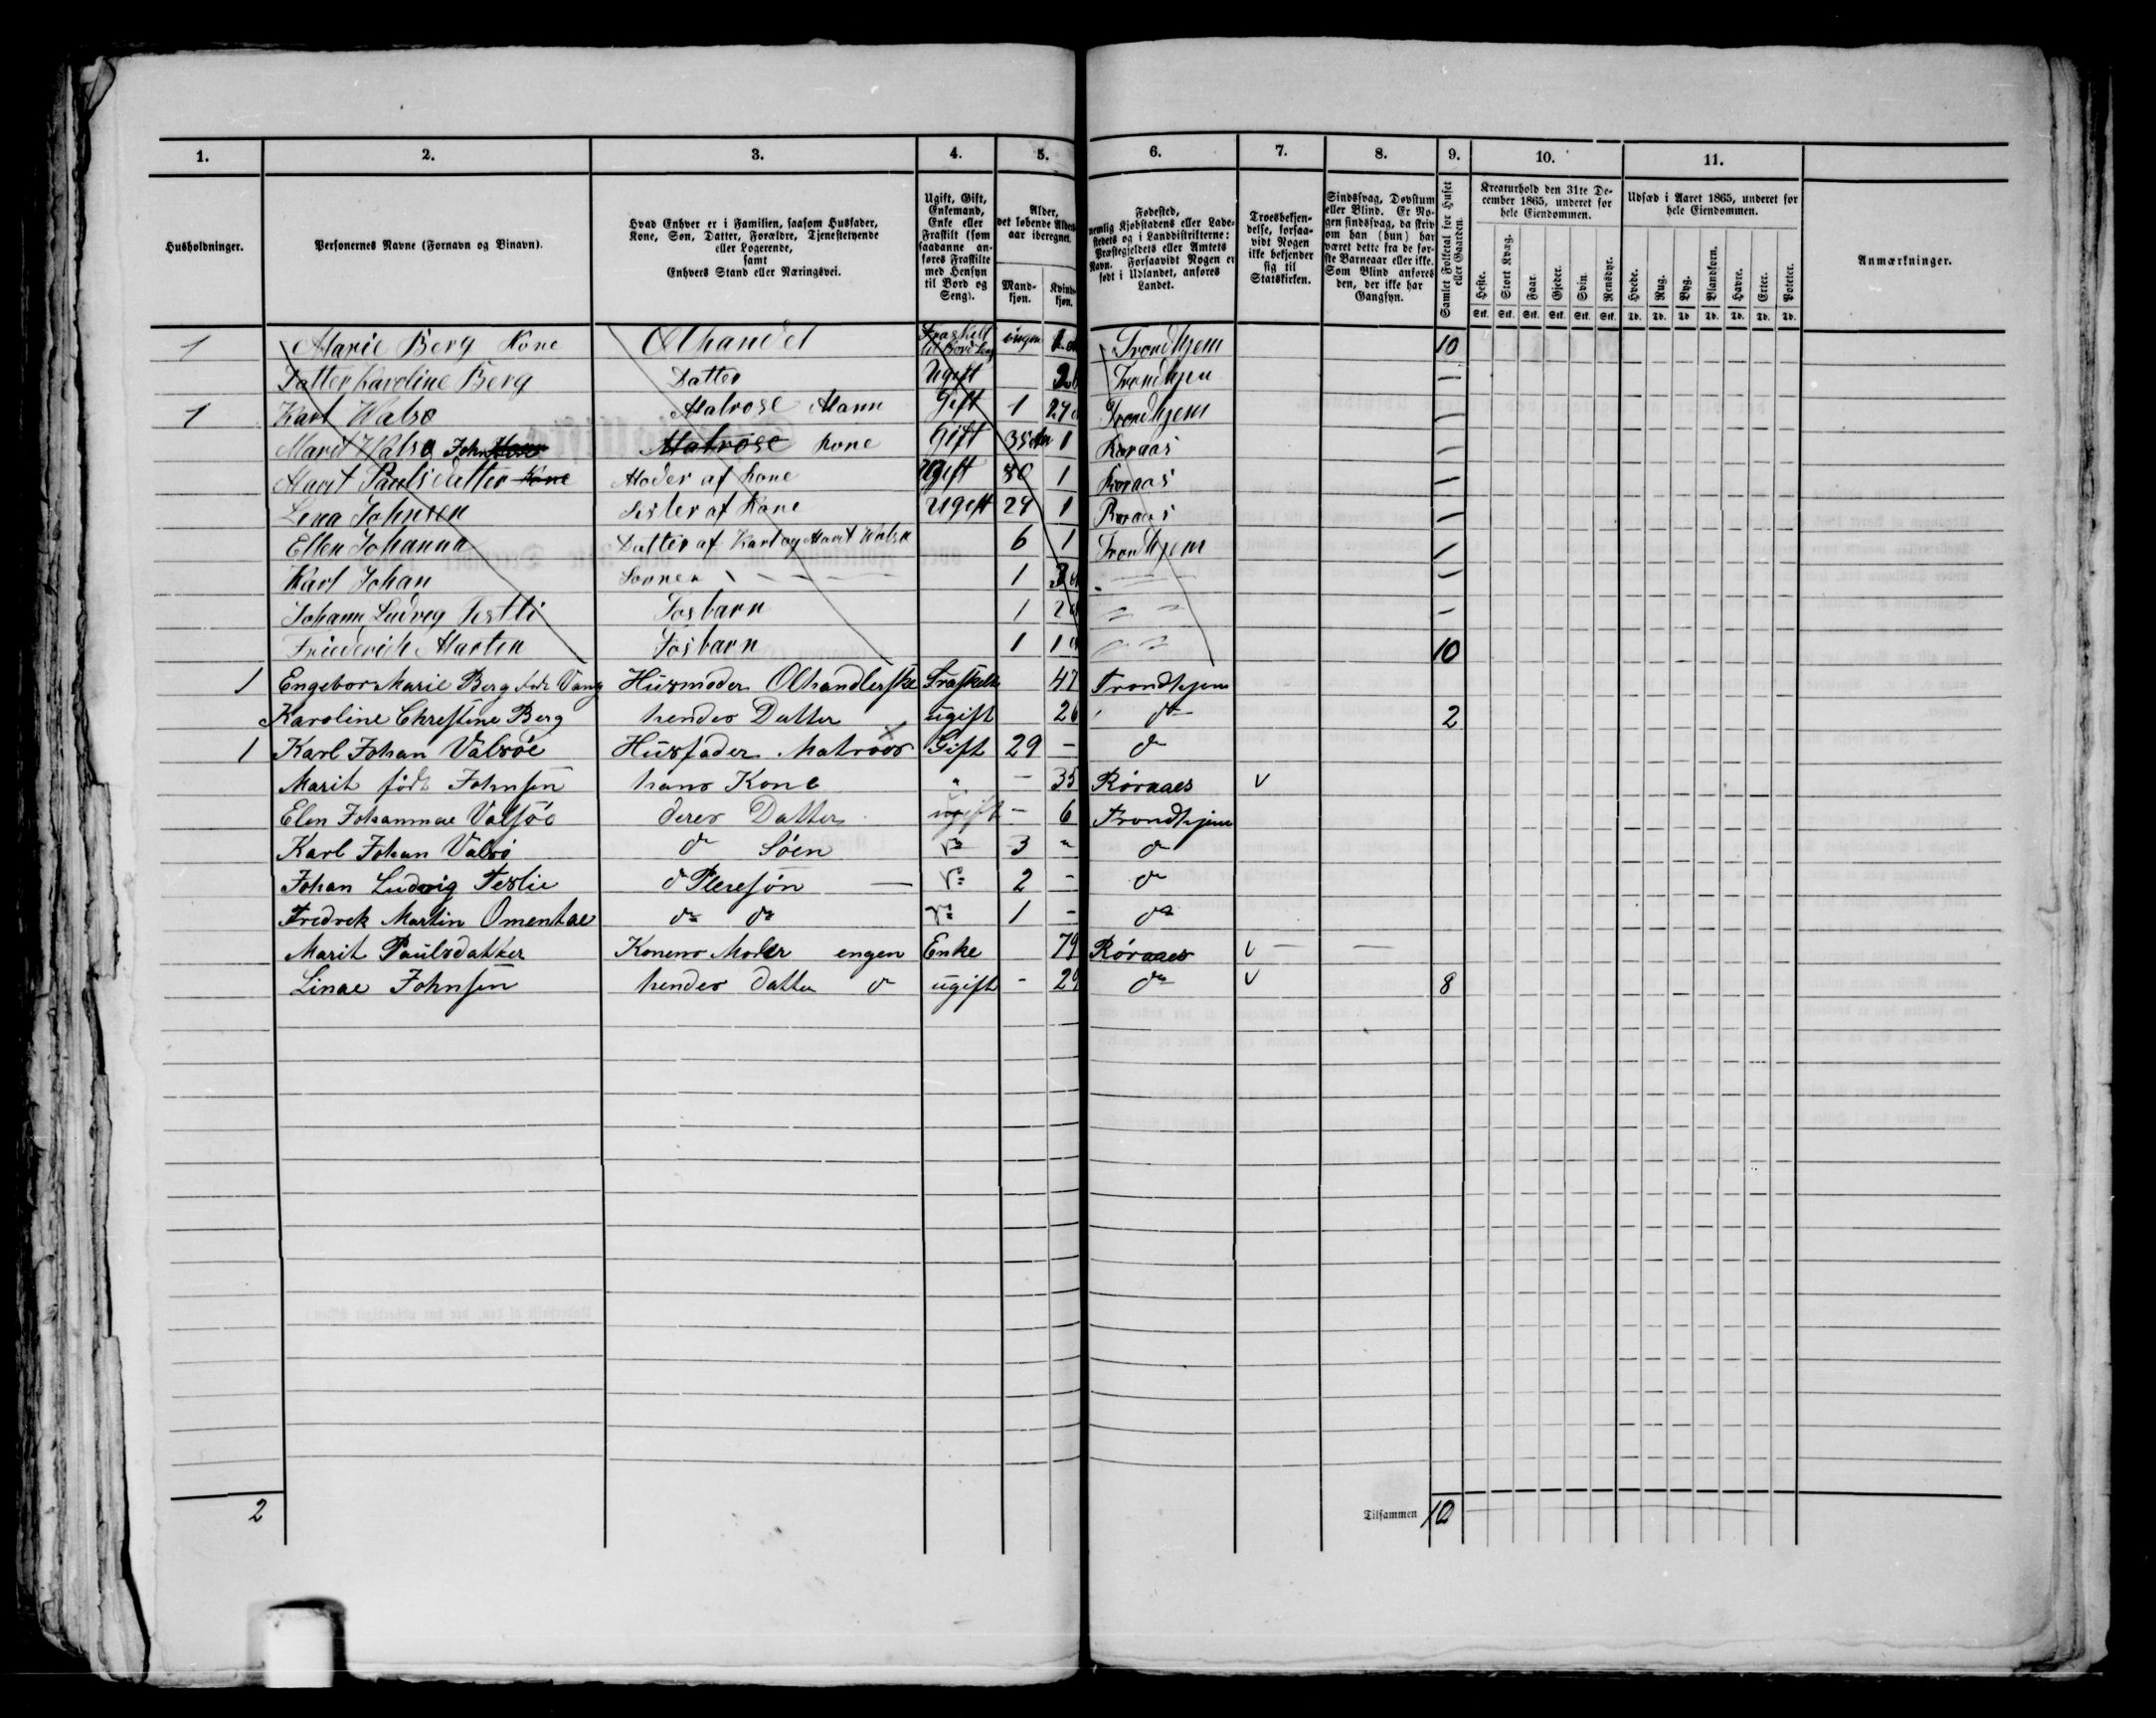 1. 2. 3. 4. 5. 6. 7. 8. 9. 10. 11.
Husholdninger.
Personernes Navne (Fornavn og Binavn).
Hvad Enhver er i Familien, saasom Husfader,
Kone, Søn, Datter, Forældre, Tjenestetyende
eller Logerende,
samt
Enhvers Stand eller Næringsvei.
Ugift, Gift,
Enkemand,
Enke eller
Fraskilt (som
saadanne an-
føres Fraskilte
med Hensyn
til Bord og
Seng).
Alder,
det løbende Alders-
aar iberegnet.
Mand-
kjøn.
Kvind-
kjøn.
Fødested,
nemlig Kjøbstadens eller Lade-
stedets og i Landdistrikterne:
Præstegjeldets eller Amtets
Navn. Forsaavidt Nogen er
født i Udlandet, anføres
Landet.
Troesbekjen-
delse, forsaa-
vidt Nogen
ikke bekjender
sig til
Statskirken.
Sindssvag, Døvstum
eller Blind. Er No-
gen sindssvag, da skriv
om han (hun) har
været dette fra de før-
ste Barneaar eller ikke.
Som Blind anføres
den, der ikke har
Gangsyn.
Samlet Folketal for Huset
eller Gaarden.
Kreaturhold den 31te De-
cember 1865, underet for
hele Eiendommen.
Heste. Stort Kvæg. Faar. Gjeder. Svin. Rensdyr.
Stk. Stk. Stk. Stk. Stk. Stk.
Udsæd i Aaret 1865, underet for
hele Eiendommen.
Hvede. Rug. Byg. Blandkorn. Havre. Erter. Poteter.
Td. Td. Td. Td. Td. Td. Td.
Anmærkninger.
1 Marie Berg Kone Olhandel Fraskelt til Bord Seng ingen Trondhjem 10
Datter Karoline Berg Datter Ugift Trondhjem
1 Karl Walso Matrose Mann Gift 1 29 Trondhjem
Marit Walso John Matrose Kone Gift 35 1 Roraas
Marit Paulsdatter Kone Moder af Kone Ugift 1 Roraas
Lena Johnsen Sister af Kone Ugeft 29 1 Roraas
Ellen Johanna Datter af Karl og Marit Walso 6 1 Trondhjem
Karl Johan Sonnen 1 3
Johann Ludveg Testli Fosbarn 1 2
Friederich Marten Fosbarn 1 1 10
1 Engebor Marie Berg født Vang Husmoder Olhandlerske Fraskelt 47 Trondhjem
Karoline Chrestine Berg hendes Datter ugift 26 do 2
1 Karl Johan Valsøe Husfader Matroos Gift 29 - do
Marit født Johnsen hans Kone " - 35 Røraaes v
Elen Johannae Valsøe deres Datter ugift - 6 Trondhjem
Karl Johan Valsø do Søen do 3 " do
Johan Ludvig Teslie do Plesesøn do 2 - do
Fredrek Martin Omentae do do do 1 - do
Marit Paulsdatter Konens Moder engen Enke 79 Røraaes v
Linae Johnsen hendes datter do ugift - 29 do v 8
2 Tilsammen 10